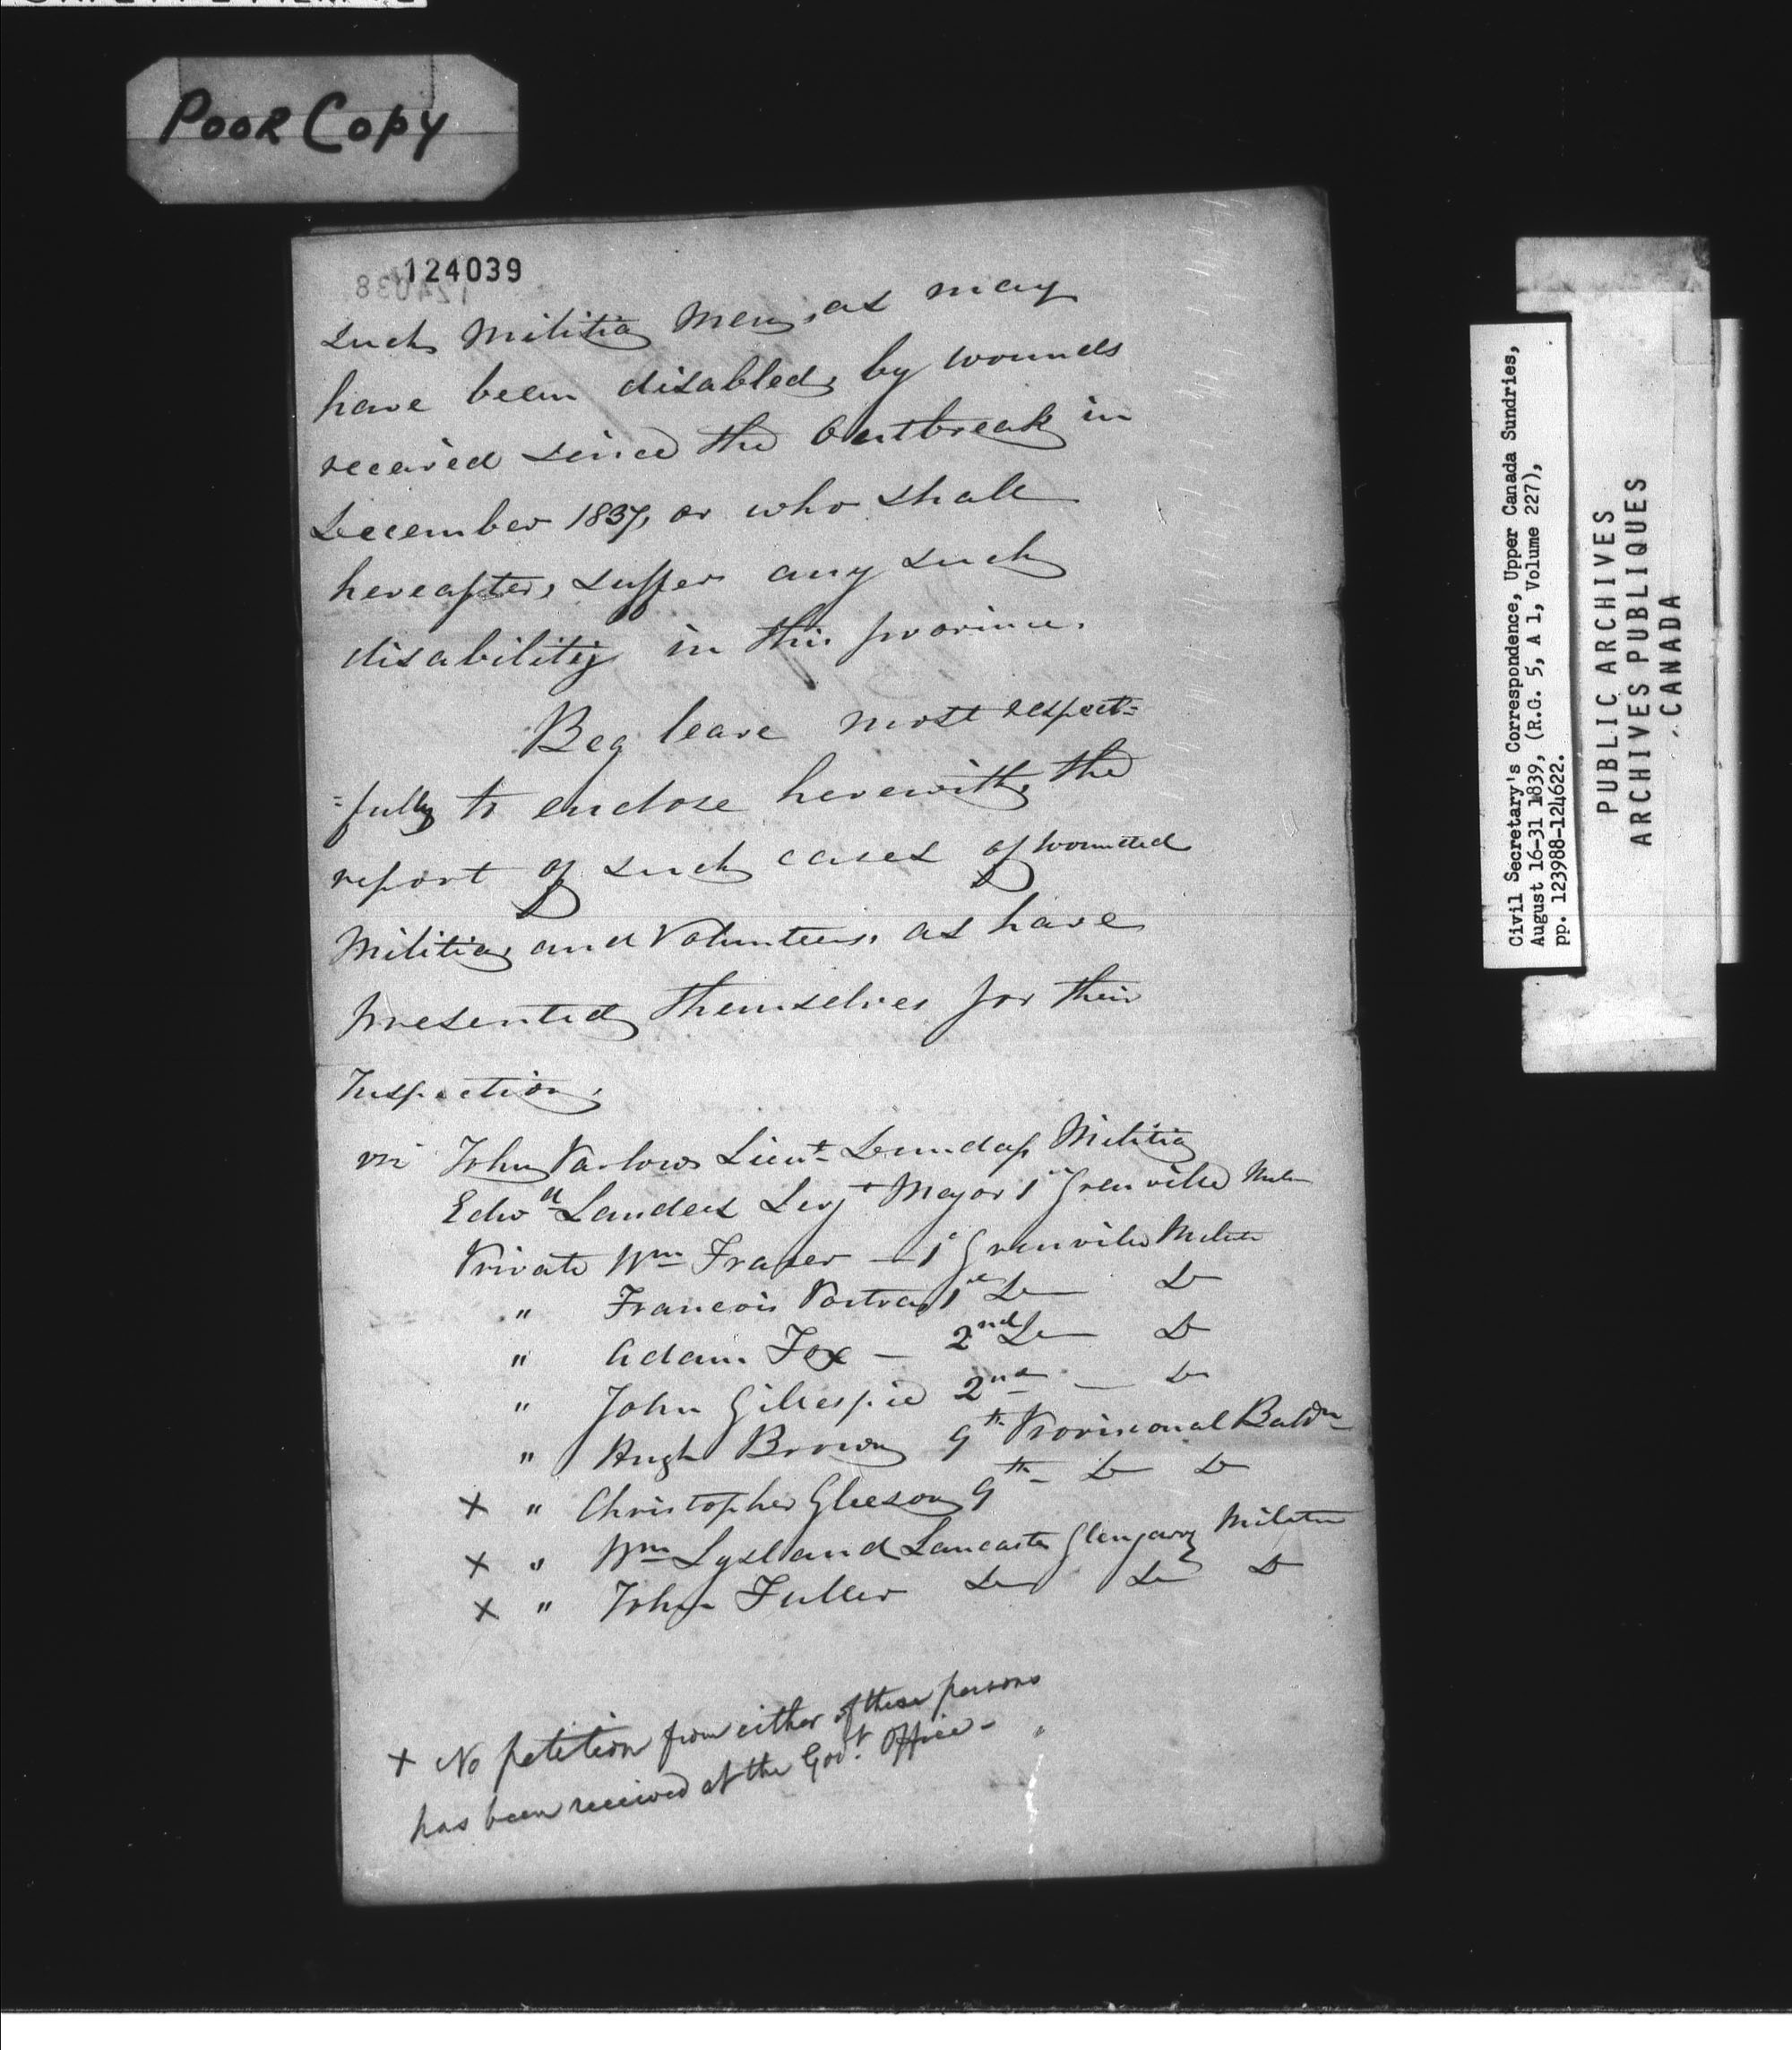 POOR COPY
124039
such Militia Men, as may
have been disabled, by wounds
received since the Outbreak in
December 1837, or who shall
hereafter, suffer any such
disability in this province.
Beg leave most respect=
=fully to enclose herewith, the
report of such cases of wounded
Militia, and Volunteers, as have
presented themselves for their
Inspection,
John Parlow Lieut Dundass Militia
Edwd Landers Serjt Major 1st Grenville
Private Wm Fraser — 1st Grenville Militia
" Francois 1st Do — Do
" Adam Fox — 2nd Do — Do
" John Gillespie 2nd — Do
" Hugh Brown 9th Provisional Battn
X " Christopher Gleeson 9th Do Do
X " Wm Lysland Lancaster Glengary Militia
X " John Fuller Do Do Do
X No petition from either of these persons
has been received at the Govt. Office –
Civil Secretary's Correspondence, Upper Canada Sundries,
August 16-31 1839, (R.G. 5, A 1, Volume 227),
pp. 123988-124622.
PUBLIC ARCHIVES
ARCHIVES PUBLIQUES
CANADA